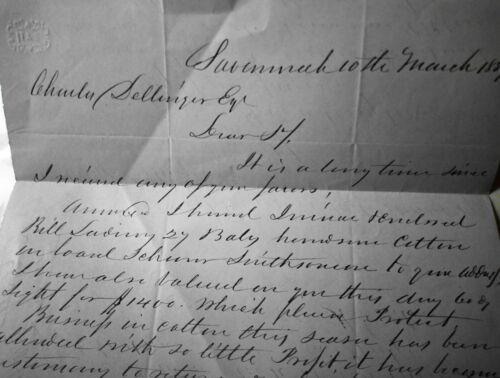 Savannah 10th March 18
Charles Dellinger Esqr
Dear Sir,
It is a long time since
I received any of your favors,
Annexed I hand Invoice & enclosed
Bill Lading 27 Bales handsome Cotton
on board Schooner Smithsonian to your address,
I have also Valued on you this day 60 ds
Sight for $1400. which please Protect
Business in cotton this season has been
attended with so little Profit it has become